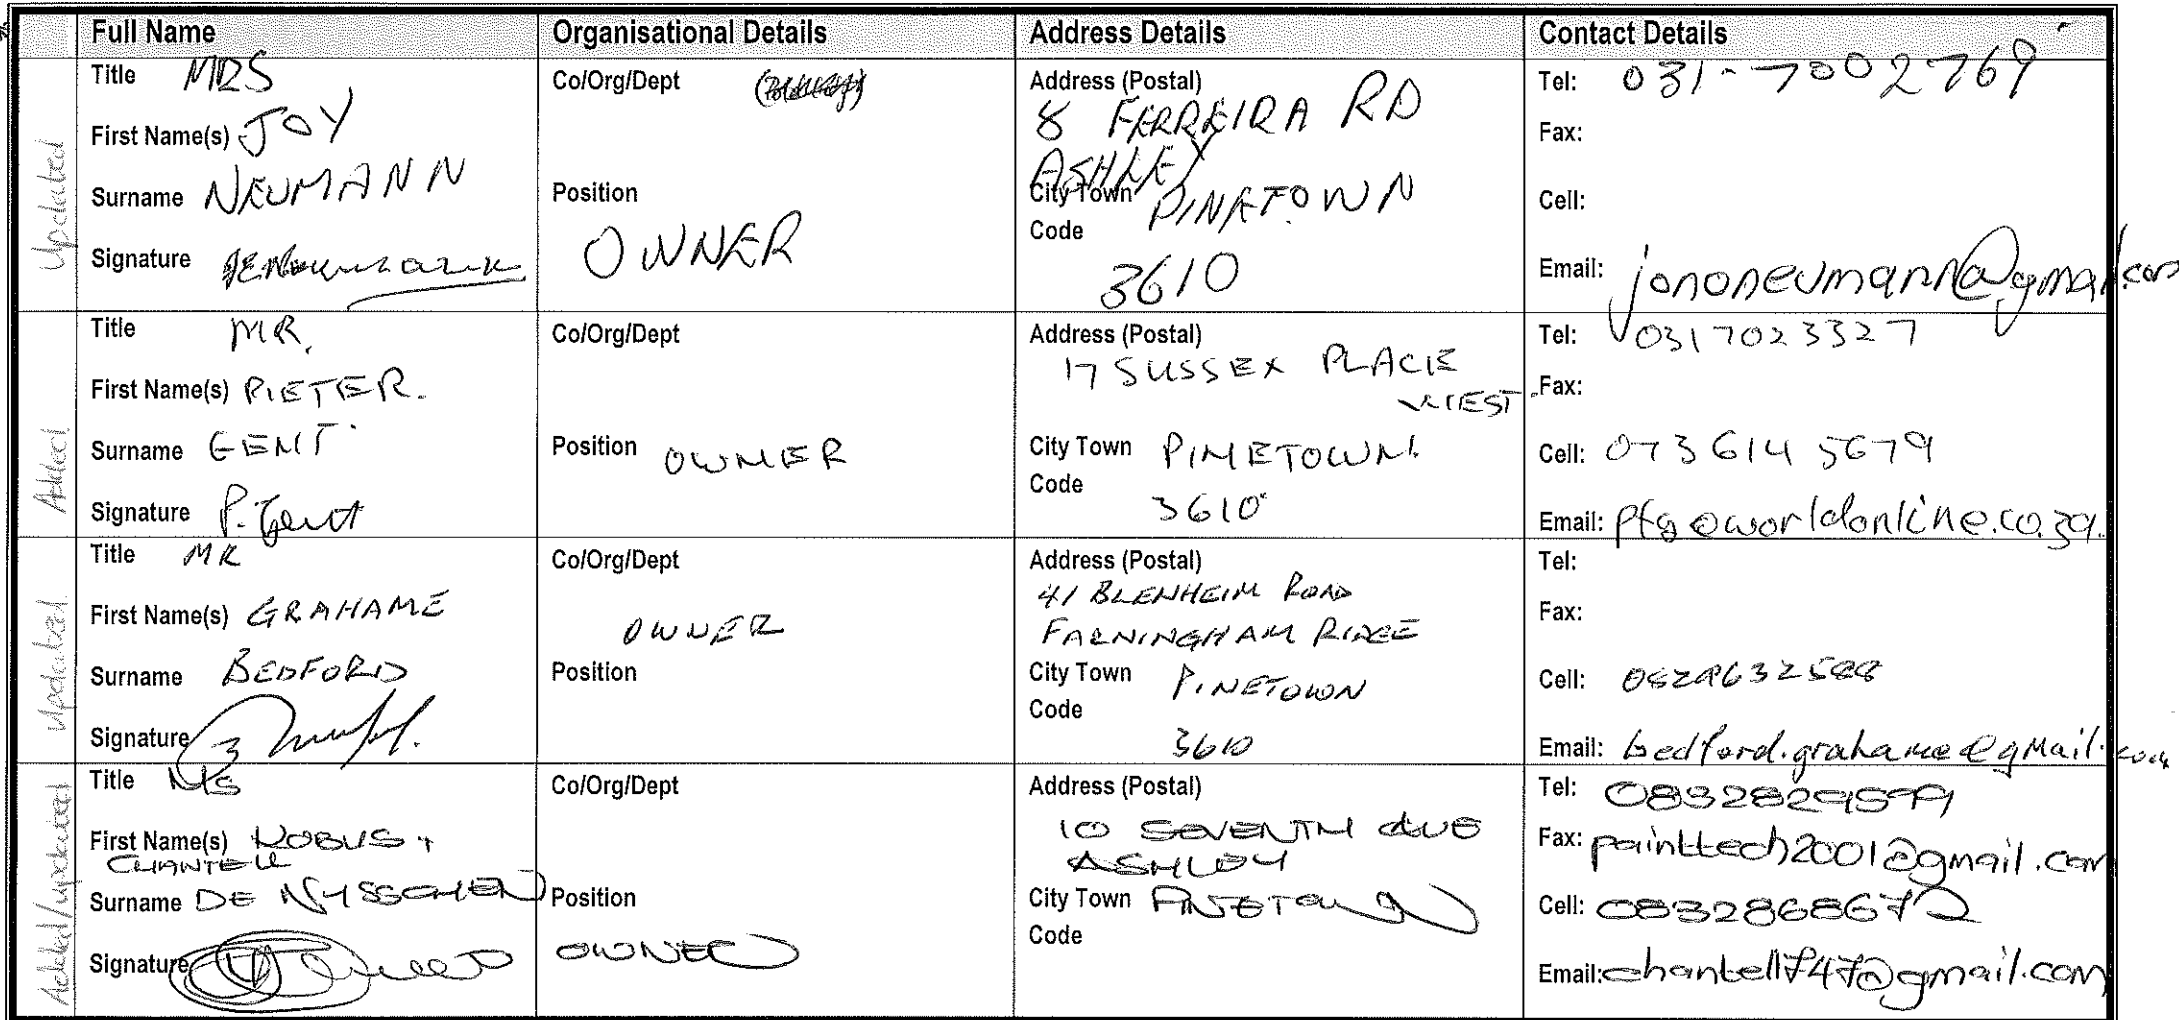 Full Name Organisational Details Address Details Contact Details
Updated
Title MRS
First Name(s) JOY
Surname NEUMANN
Signature
Co/Org/Dept
Position
OWNER
Address (Postal)
8 FERREIRA RD
ASHLEY
City Town PINETOWN
Code
3610
Tel: 031-7002769
Fax:
Cell:
Email: jononeumann@gmail.com
Added
Title MR.
First Name(s) PIETER.
Surname GENT
Signature P. Gent
Co/Org/Dept
Position OWNER
Address (Postal)
17 SUSSEX PLACE
WEST
City Town PINETOWN
Code
3610
Tel: 0317023327
Fax:
Cell: 073 614 5679
Email: pfg@worldonline.co.za.
Updated
Title MR
First Name(s) GRAHAME
Surname BEDFORD
Signature
Co/Org/Dept
OWNER
Position
Address (Postal)
41 BLENHEIM ROAD
FARNINGHAM RIDGE
City Town PINETOWN
Code
3610
Tel:
Fax:
Cell:
Email: bedford.grahame@gmail.com
Added/updated
Title MS
First Name(s) KOBUS +
CHANTELL
Surname DE NYSSCHEN
Signature
Co/Org/Dept
Position
OWNER
Address (Postal)
10 SEVENTH AVE
ASHLEY
City Town PINETOWN
Code
Tel: 0832829599
Fax: painttech2001@gmail.com
Cell: 0832868672
Email: chantell747@gmail.com